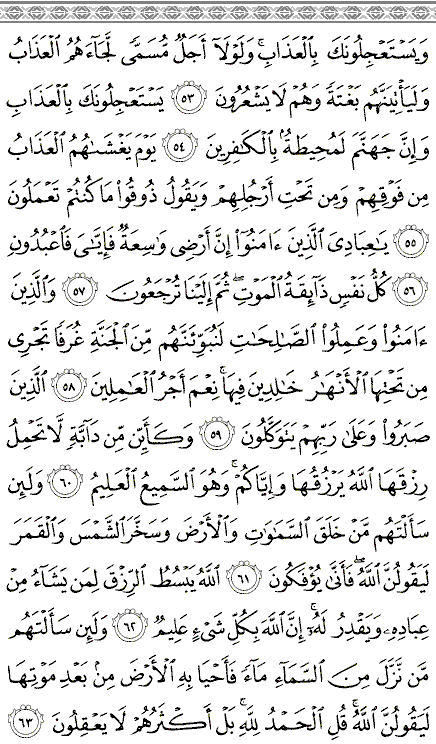 وَيَسۡتَعۡجِلُونَكَ بِٱلۡعَذَابِ ۚ وَلَوۡلَآ أَجَلٌ مُّسَمًّى لَّجَآءَهُمُ ٱلۡعَذَابُ
وَلَيَأۡتِيَنَّهُم بَغۡتَةً وَهُمۡ لَا يَشۡعُرُونَ ٥٣ يَسۡتَعۡجِلُونَكَ بِٱلۡعَذَابِ
وَإِنَّ جَهَنَّمَ لَمُحِيطَةٌۢ بِٱلۡكَـٰفِرِينَ ٥٤ يَوۡمَ يَغۡشَىٰهُمُ ٱلۡعَذَابُ
مِن فَوۡقِهِمۡ وَمِن تَحۡتِ أَرۡجُلِهِمۡ وَيَقُولُ ذُوقُواْ مَا كُنتُمۡ تَعۡمَلُونَ
٥٥ يَـٰعِبَادِيَ ٱلَّذِينَ ءَامَنُوٓاْ إِنَّ أَرۡضِي وَٰسِعَةٌ فَإِيَّـٰيَ فَٱعۡبُدُونِ
٥٦ كُلُّ نَفۡسٍ ذَآئِقَةُ ٱلۡمَوۡتِ ۖ ثُمَّ إِلَيۡنَا تُرۡجَعُونَ ٥٧ وَٱلَّذِينَ
ءَامَنُواْ وَعَمِلُواْ ٱلصَّـٰلِحَـٰتِ لَنُبَوِّئَنَّهُم مِّنَ ٱلۡجَنَّةِ غُرَفًا تَجۡرِي
مِن تَحۡتِهَا ٱلۡأَنۡهَـٰرُ خَـٰلِدِينَ فِيهَا ۚ نِعۡمَ أَجۡرُ ٱلۡعَـٰمِلِينَ ٥٨ ٱلَّذِينَ
صَبَرُواْ وَعَلَىٰ رَبِّهِمۡ يَتَوَكَّلُونَ ٥٩ وَكَأَيِّن مِّن دَآبَّةٍ لَّا تَحۡمِلُ
رِزۡقَهَا ٱللَّهُ يَرۡزُقُهَا وَإِيَّاكُمۡ ۚ وَهُوَ ٱلسَّمِيعُ ٱلۡعَلِيمُ ٦٠ وَلَئِن
سَأَلۡتَهُم مَّنۡ خَلَقَ ٱلسَّمَـٰوَٰتِ وَٱلۡأَرۡضَ وَسَخَّرَ ٱلشَّمۡسَ وَٱلۡقَمَرَ
لَيَقُولُنَّ ٱللَّهُ ۖ فَأَنَّىٰ يُؤۡفَكُونَ ٦١ ٱللَّهُ يَبۡسُطُ ٱلرِّزۡقَ لِمَن يَشَآءُ مِنۡ
عِبَادِهِۦ وَيَقۡدِرُ لَهُۥٓ ۚ إِنَّ ٱللَّهَ بِكُلِّ شَيۡءٍ عَلِيمٌ ٦٢ وَلَئِن سَأَلۡتَهُم
مَّن نَّزَّلَ مِنَ ٱلسَّمَآءِ مَآءً فَأَحۡيَا بِهِ ٱلۡأَرۡضَ مِنۢ بَعۡدِ مَوۡتِهَا
لَيَقُولُنَّ ٱللَّهُ ۚ قُلِ ٱلۡحَمۡدُ لِلَّهِ ۚ بَلۡ أَكۡثَرُهُمۡ لَا يَعۡقِلُونَ ٦٣